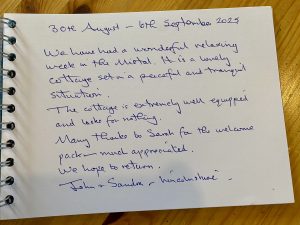 30th August - 6th September 2025
We have had a wonderful relaxing
week in the Mistal. It is a lovely
cottage set in a peaceful and tranquil
situation.
The cottage is extremely well equipped
and lacks for nothing.
Many thanks to Sarah for the welcome
pack - much appreciated.
We hope to return.
John & Sandra - Lincolnshire.